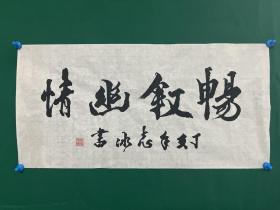 暢叙幽情
丁亥年志冰書